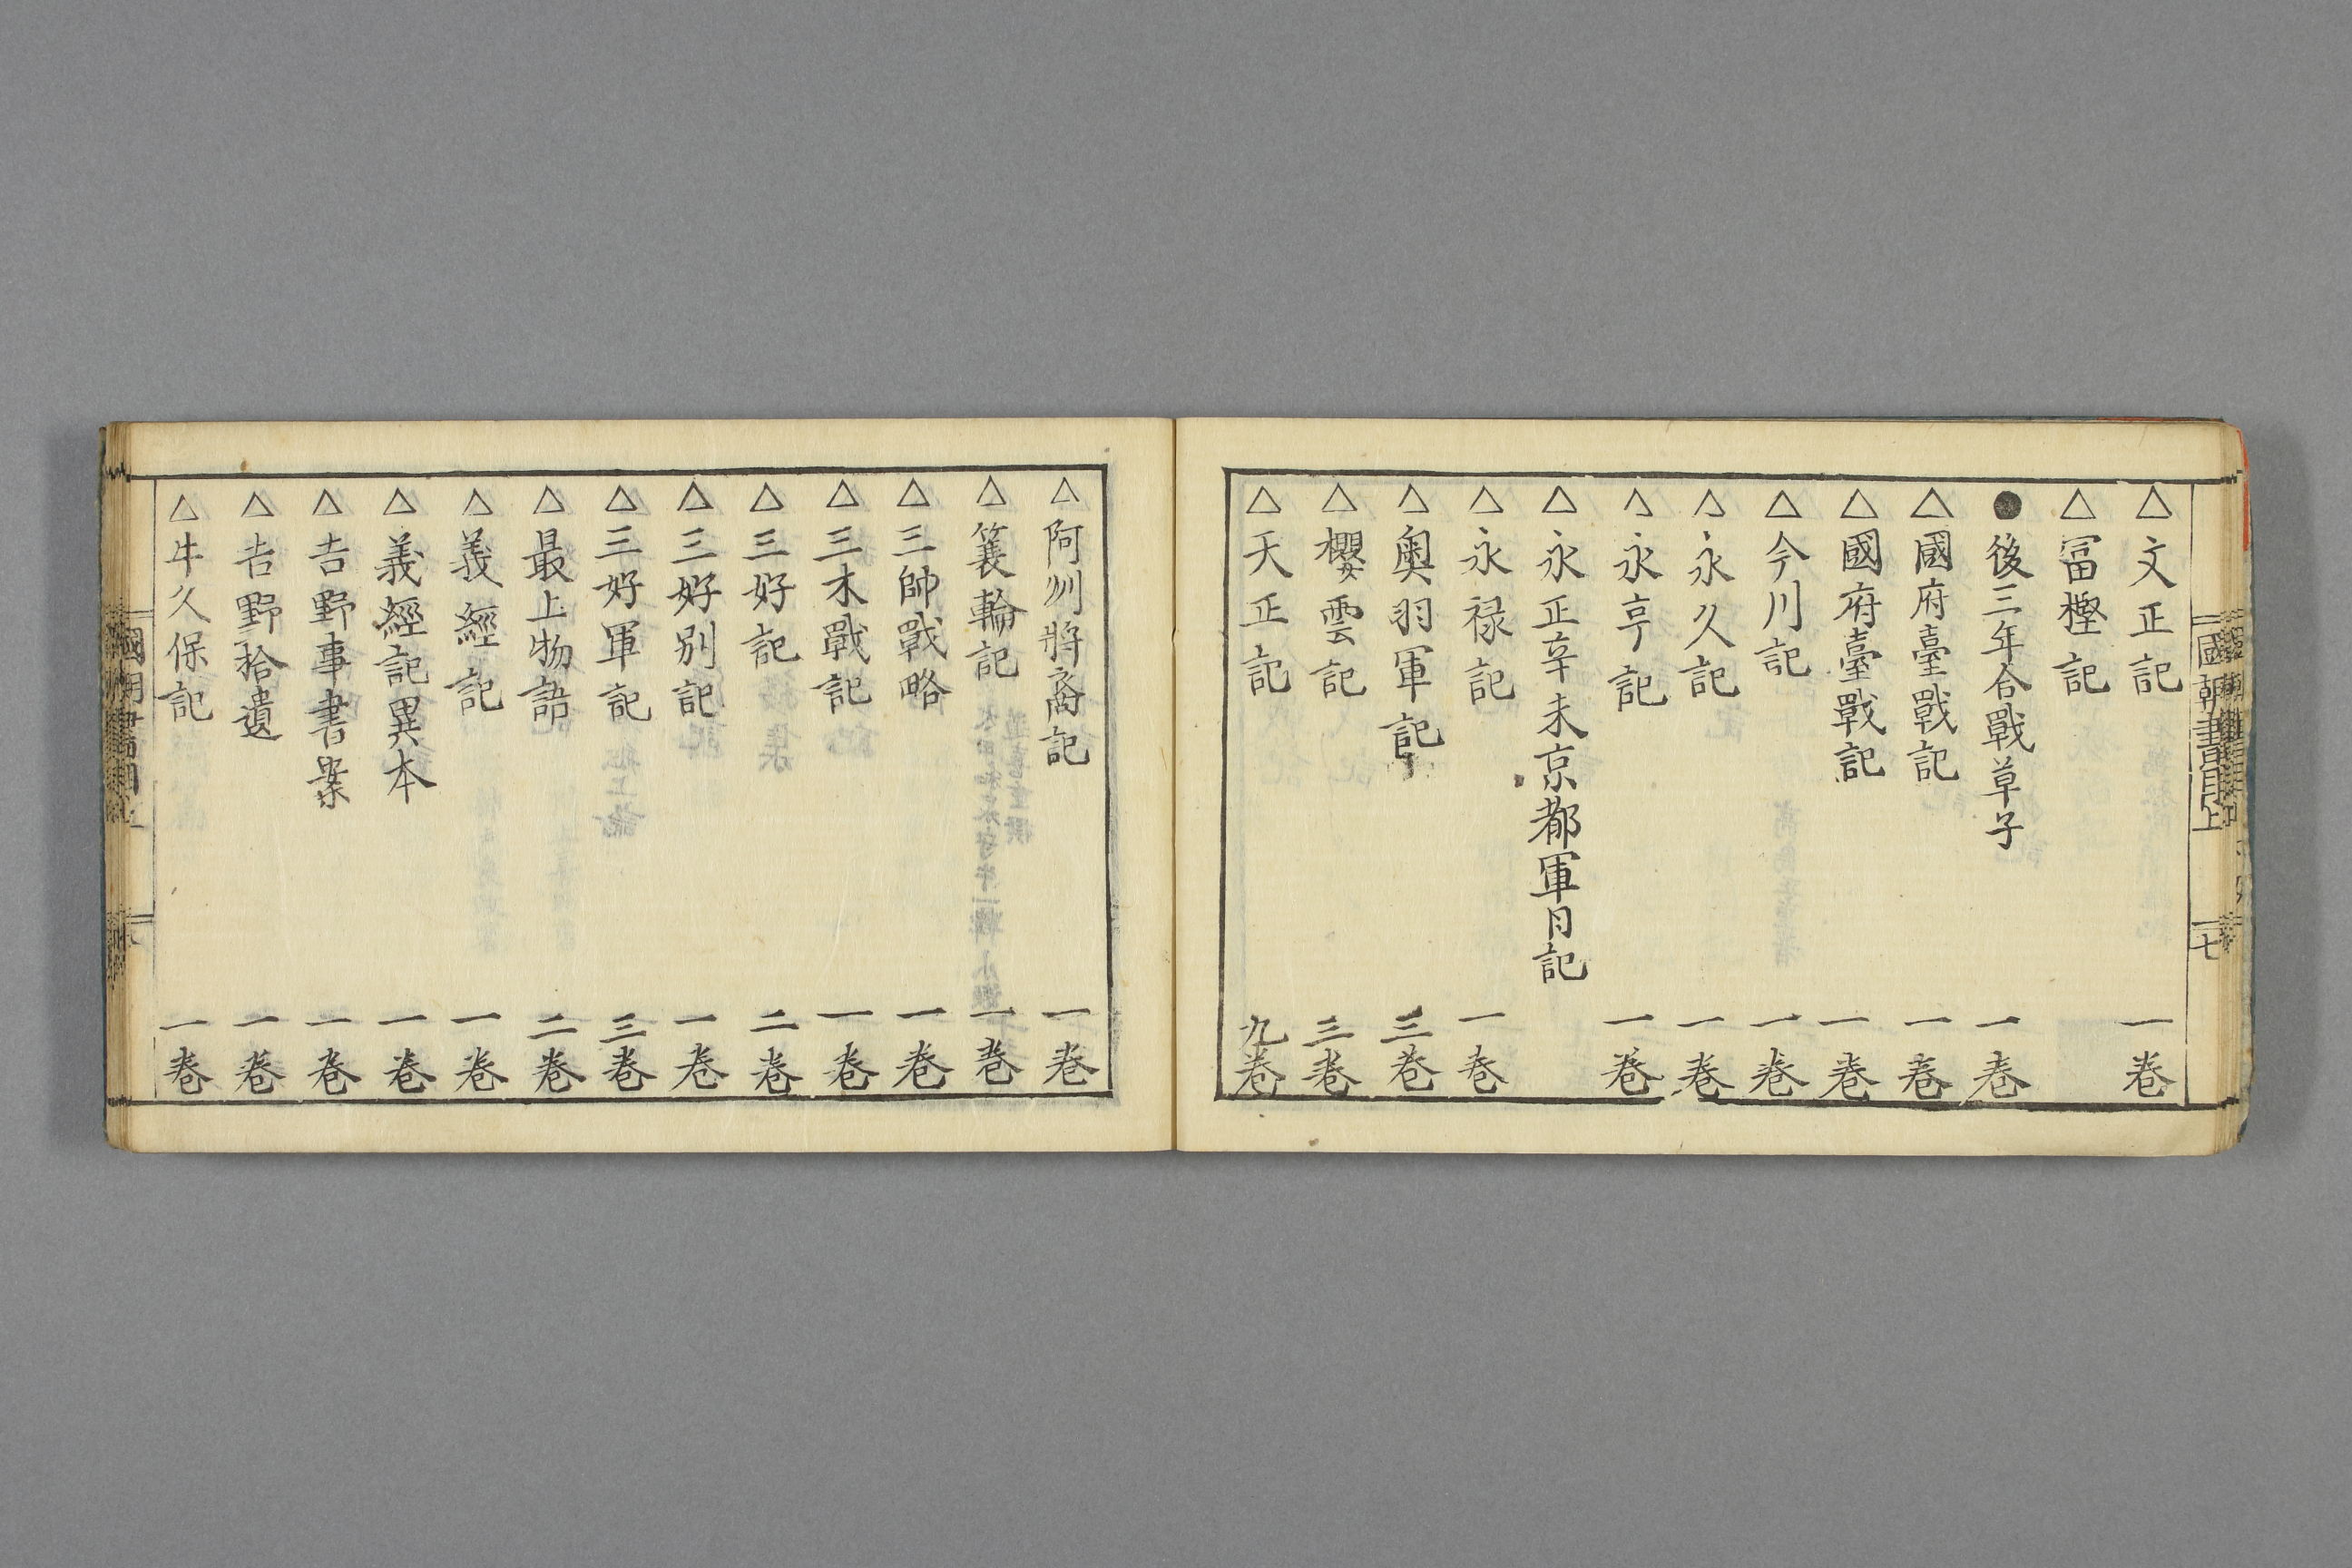 國朝書目上 七
△文正記 一巻
△冨樫記
●後三年合戰草子 一巻
△國府臺戰記 一巻
△國府臺戰記 一巻
△今川記 一巻
△永久記 一巻
△永亨記 一巻
△永正辛未京都軍月記
△永禄記 一巻
△奥羽軍記 三巻
△櫻雲記 三巻
△天正記 九巻
△阿州將裔記 一巻
△簑輪記 一巻
△三帥戰略 一巻
△三木戰記 一巻
△三好記 二巻
△三好別記 一巻
△三好軍記 三巻
△最上物語 二巻
△義經記 一巻
△義經記異本 一巻
△吉野事書案 一巻
△吉野拾遺 一巻
△牛久保記 一巻